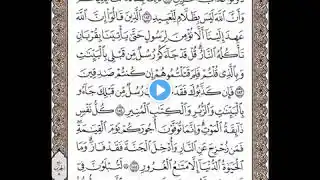 وَأَنَّ ٱللَّهَ لَيْسَ بِظَلَّامٍ لِّلْعَبِيدِ ١٨٢ ٱلَّذِينَ قَالُوٓا۟ إِنَّ ٱللَّهَ
عَهِدَ إِلَيْنَآ أَلَّا نُؤْمِنَ لِرَسُولٍ حَتَّىٰ يَأْتِيَنَا بِقُرْبَانٍ
تَأْكُلُهُ ٱلنَّارُ قُلْ قَدْ جَآءَكُمْ رُسُلٌ مِّن قَبْلِى بِٱلْبَيِّنَٰتِ
وَبِٱلَّذِى قُلْتُمْ فَلِمَ قَتَلْتُمُوهُمْ إِن كُنتُمْ صَٰدِقِينَ
١٨٣ فَإِن كَذَّبُوكَ فَقَدْ رُسُلٌ مِّن قَبْلِكَ جَآءُو
بِٱلْبَيِّنَٰتِ وَٱلزُّبُرِ وَٱلْكِتَٰبِ ٱلْمُنِيرِ ١٨٤ كُلُّ نَفْسٍ
ذَآئِقَةُ ٱلْمَوْتِ وَإِنَّمَا تُوَفَّوْنَ أُجُورَكُمْ يَوْمَ ٱلْقِيَٰمَةِ
فَمَن زُحْزِحَ عَنِ ٱلنَّارِ وَأُدْخِلَ ٱلْجَنَّةَ فَقَدْ فَازَ وَمَا
ٱلْحَيَوٰةُ ٱلدُّنْيَآ إِلَّا مَتَٰعُ ٱلْغُرُورِ ١٨٥ لَتُبْلَوُنَّ فِىٓ